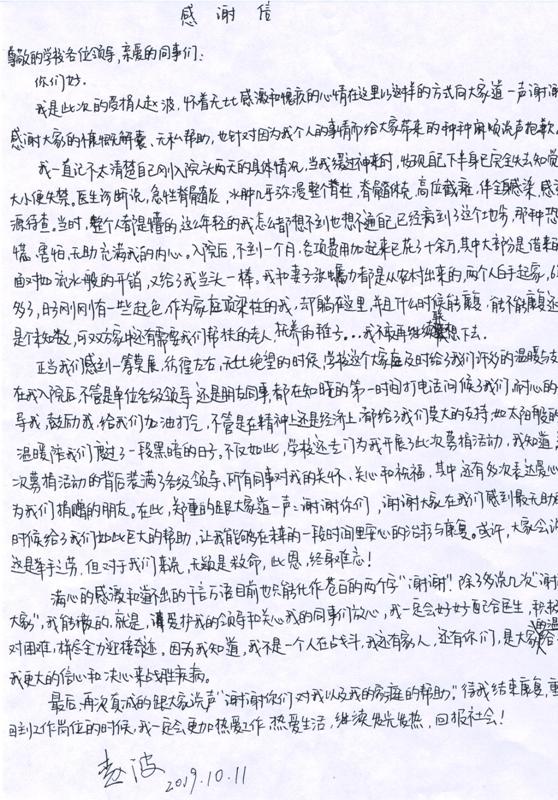 感谢信
尊敬的学校各位领导,亲爱的同事们:
你们好.
我是此次的受捐人赵波,怀着无比感激和愧疚的心情在这里以这样的方式向大家道一声谢谢
感谢大家的慷慨解囊、无私帮助,也针对因为我个人的事情而给大家带来的种种麻烦说声抱歉
我一直记不太清楚自己刚入院头两天的具体情况,当我缓过神来时,发现自己下半身已完全失去知觉
大小便失禁。医生诊断说,急性脊髓炎,水肿几乎弥漫整个脊柱,脊髓休克,高位截瘫,伴全身感染,感染
源待查。当时,整个人都是懵的,这么年轻的我怎么都想不到也想不通自己已经病到了这个地步,那种恐
慌、害怕、无助充满我的内心。入院后,不到一个月,各项费用加起来已花了十余万,其中大部分是借来的
面对如流水般的开销,又给了我当头一棒。我和妻子张都是从农村出来的,两个人白手起家,
多了,日子刚刚有一些起色,作为家庭顶梁柱的我,却躺在这里,并且什么时候能康复,能不能康复还
是个未知数,可双方家中还有需要我们帮扶的老人,的稚子…我不敢再继续想下去.
正当我们感到一筹莫展,彷徨左右,无比绝望的时候,学校这个大家庭及时给了我们许多的温暖与支
在我入院后,不管是单位各级领导还是朋友同事,都在知晓的第一时间打电话问候了我们,耐心的
导我,鼓励我,给我们加油打气,不管是在精神上还是经济上,都给了我们莫大的支持,如太阳般的
温暖陪我们度过了一段黑暗的日子。不仅如此,学校还专门为我开展了此次募捐活动,我知道,
次募捐活动的背后装满了各级领导、所有同事对我的关怀、关心和祝福,其中还有多次表达爱心
为我们捐赠的朋友。在此,郑重的跟大家道一声:谢谢你们,谢谢大家在我们感到最无助的
时候给了我们如此巨大的帮助,让我能够在未来的一段时间里安心的治疗与康复。或许,大家会说
这是举手之劳,但对于我们来说,无疑是救命,此恩,终身难忘!
满心的感激和道不出的千言万语目前也只能化作苍白的两个字"谢谢".除了多说几次"谢谢
大家",我能做的,就是,请爱护我的领导和关心我的同事们放心,我一定会好好配合医生,积极
对困难,拼尽全力迎接奇迹。因为我知道,我不是一个人在战斗,我还有家人,还有你们,是大家给
我更大的信心和决心来战胜疾病。
最后,再次真诚的跟大家说声"谢谢你们对我以及我的家庭的帮助".待我结束康复,重
回到工作岗位的时候,我一定会更加热爱工作,热爱生活,继续发光发热,回报社会!
赵波
2019.10.11